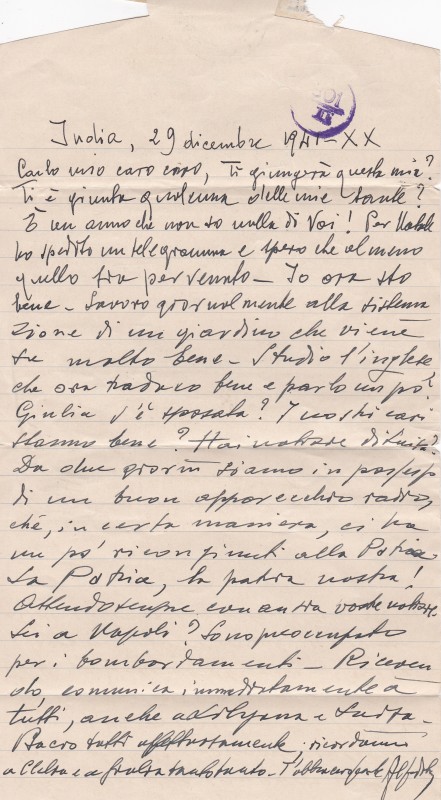 201
India, 29 dicembre 1941-XX
Carlo mio caro caro, Ti giungerà questa mia?
Ti è giunta qualcuna delle mie tante?
È un anno che non so nulla di Voi! Per Natale
ho spedito un telegramma e spero che almeno
quello sia pervenuto - Io ora sto
bene - Lavoro giornalmente alla sistema
zione di un giardino che viene
su molto bene - Studio l'inglese
che ora traduco bene e parlo un pò.
Giulia s'è sposata? I nostri cari
stanno bene? Hai notizie di
Da due giorni siamo in possesso
di un buon apparecchio radio,
chè, in certa maniera, ci ha
un pò ricongiunti alla Patria
La Patria, la patria nostra!
Attendo sempre con ansia vostre notizie
Sei a Napoli? Sono preoccupato
per i bombardamenti - Riceven
do, comunica immediatamente a
tutti, anche a e
Bacio tutti affettuosamente ricordami
a e a tanto tanto - T'abbraccio